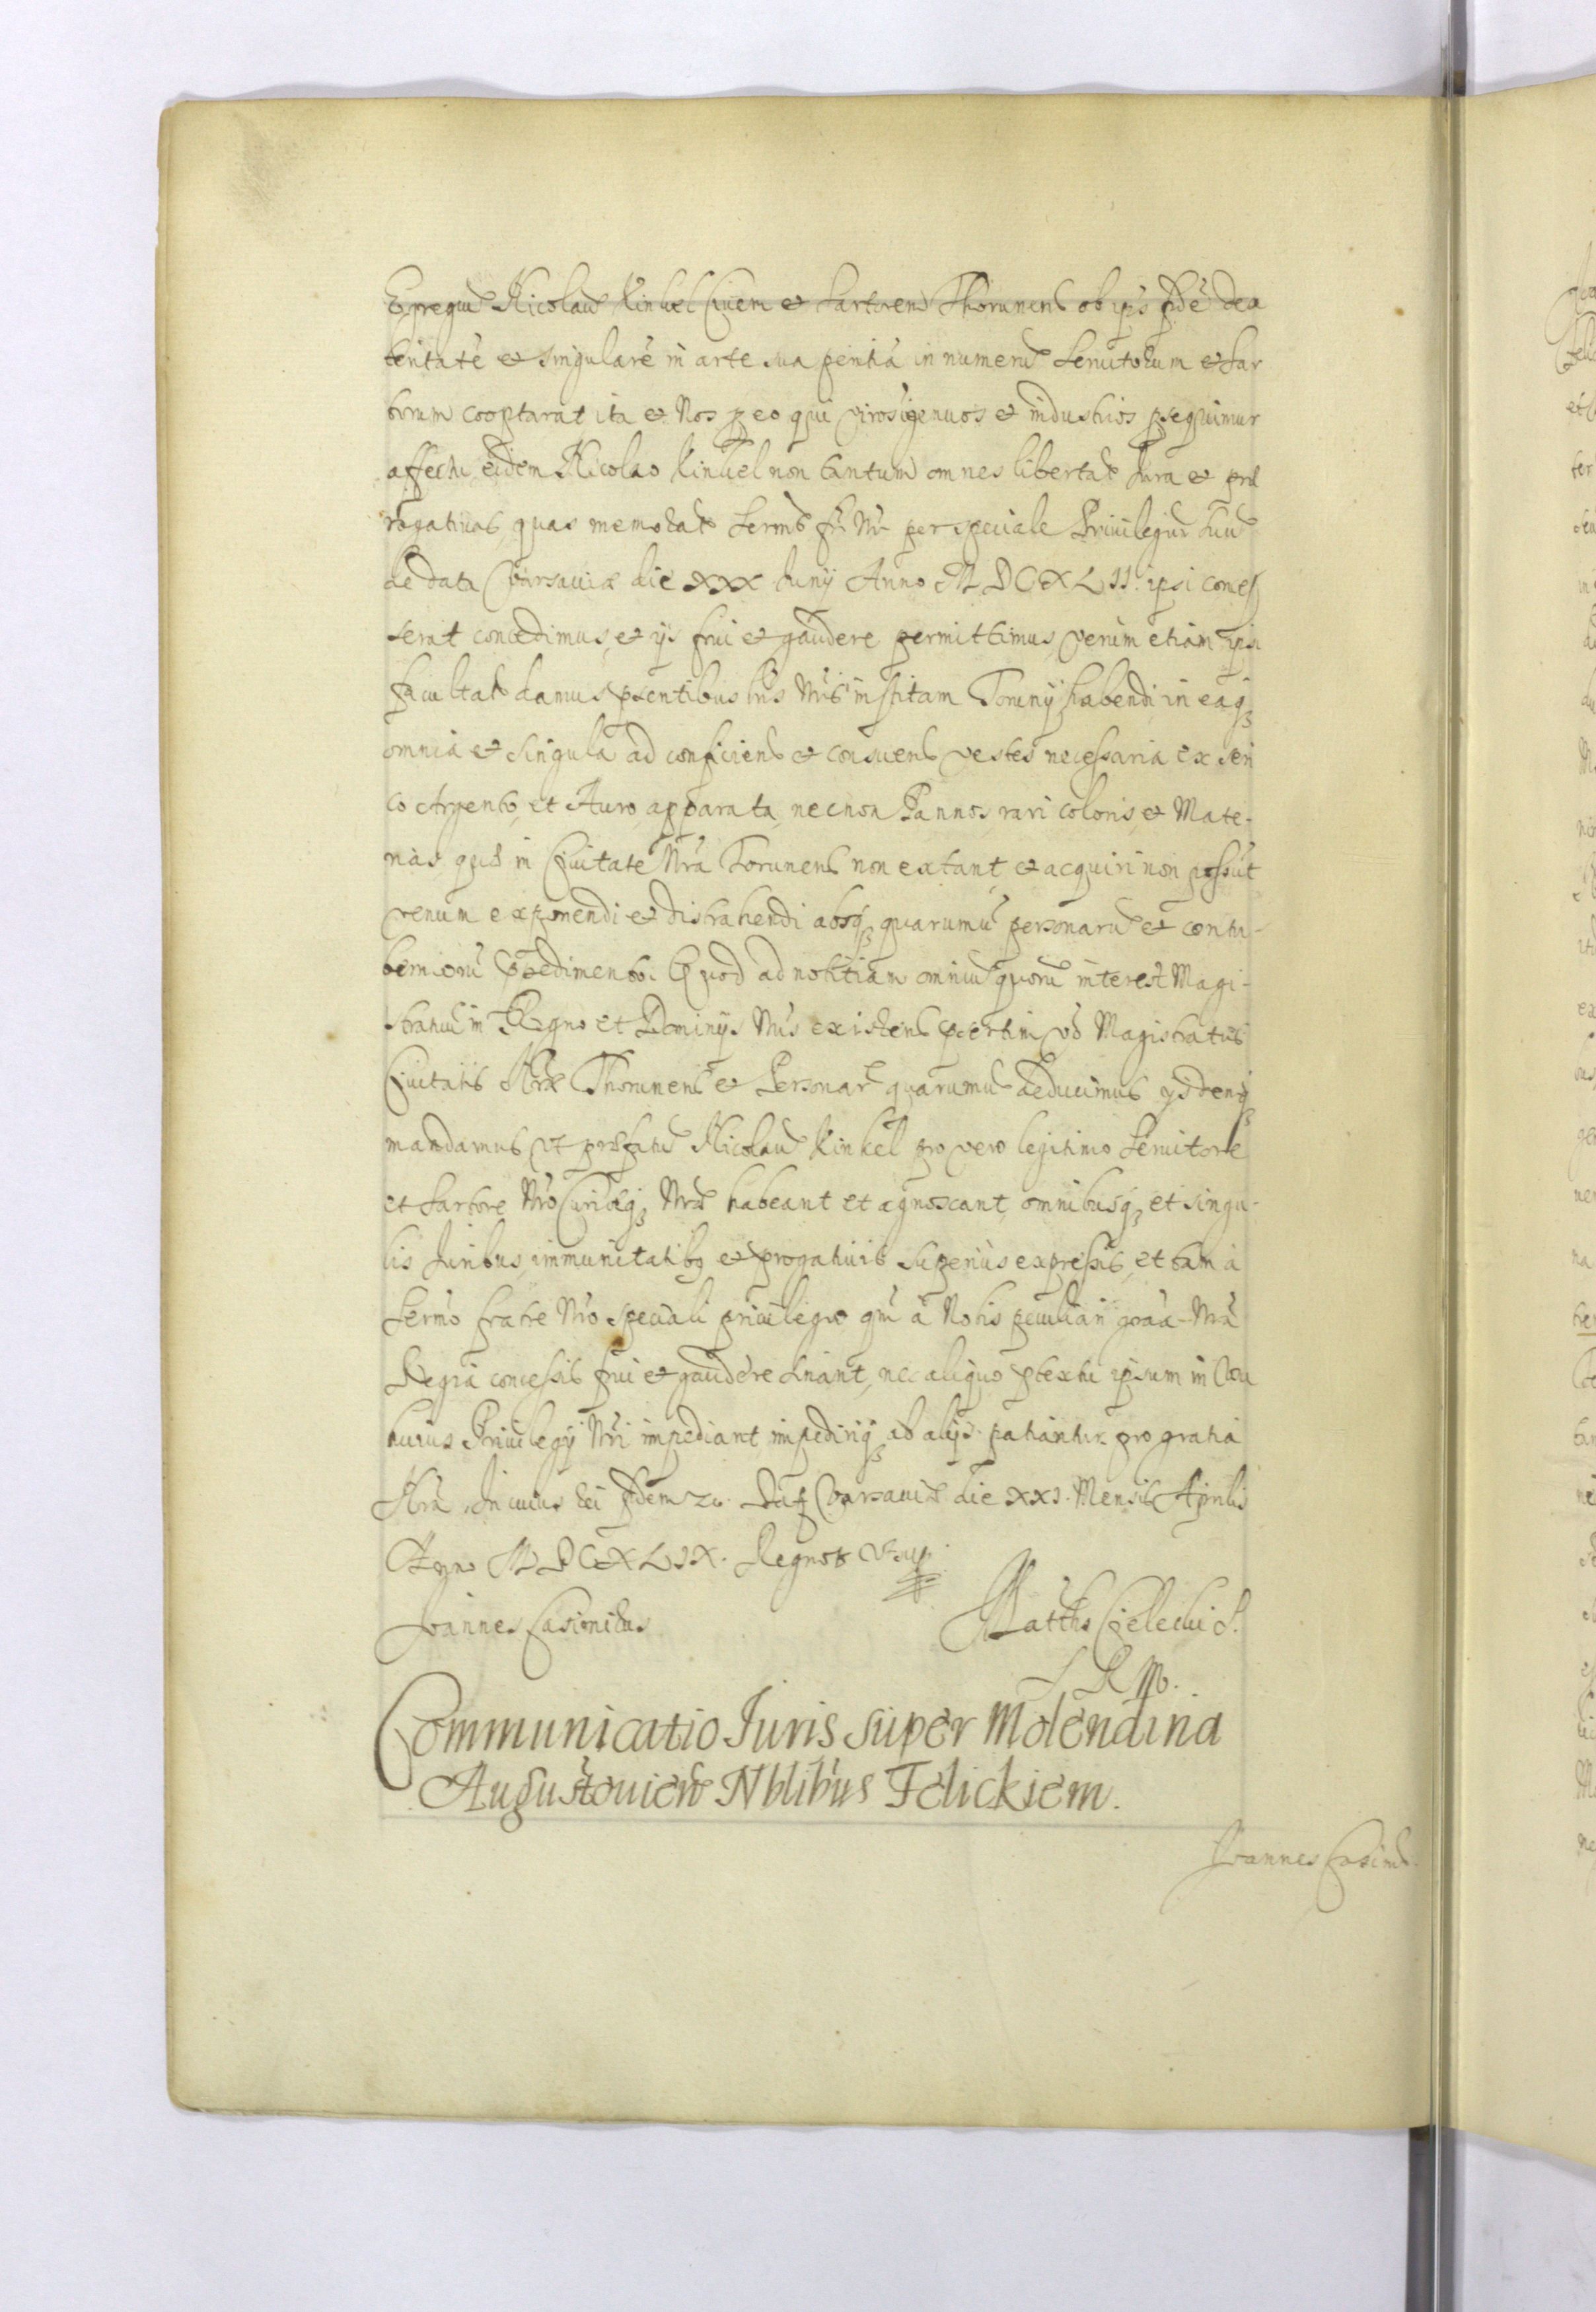 Egregiũ Nicolaũ Kinkel Civem et Sartorem Thorunens ob ips fidẽ dex
teritatẽ et singularẽ in arte sua peritiã in numerũ Servitorum et Sar
torum cooptarat ita et Nos p eo qui viros igenuos et industrios psequimur
affectu eidem Nicolao Kinkel non tantum omnes libertates Jura et prae
rogativas quas memorat Sermus fr Nr per speciale Privilegiũ Suũ
de data Varsaviae die XXX Juny Anno MDCXLII. ipsi conces
serat concedimus, et ijs frui et gaudere permittimus, verum etiam ipsi
facultatẽ damus psentibus lris Nris institam Toruny habendi, in eaq3
omnia et singula ad conficiens et consuens vestes necessaria ex seri
co Argento, et Auro apparata, necnon Pannos rari coloris, et Mate-
rias quae in Civitate Nra Torunens non extant, et acquiri non possũt
venum exponendi et distrahendi absq3 quarumvis personarũ et contu-
berniorũ Ppedimento. Quod ad notitiam omniũ quorũ interest Magi-
stratuũ in Regno et Dominijs Nris existens psertim vo Magistratus
Civitatis Nrae Thorunens et Personarũ quarumvis deducimus ysdemq3
mandamus vt praefatũ Nicolaũ Kinkel pro vero legitimo Servitore
et Sartore Nro Curiaeq3 Nrae habeant et agnoscant, omnibusq3 et singu-
lis Juribus, immunitatibq et progativis superius expressis, et tam à
Sermo fratre Nro speciali privilegio qm à Nobis peculiari graa Nra
Regia concessis frui et gaudere sinant, nec aliquo ptextu ipsum in usu
huius Privilegij Nri impediant, impediriq3 ab alijs patiantur. pro gratia
Nra In cuius rei fidem 2c. Dat Varsaviae die XXI. Mensis Aprilis
Anno MDCXLIX. Regnor vt sup
Joannes Casimirus Matths Cielecki S.
S R Mo.
Communicatio Iuris super Molendina
Augustovien Nblibus Felickiem.
Joannes Casimis